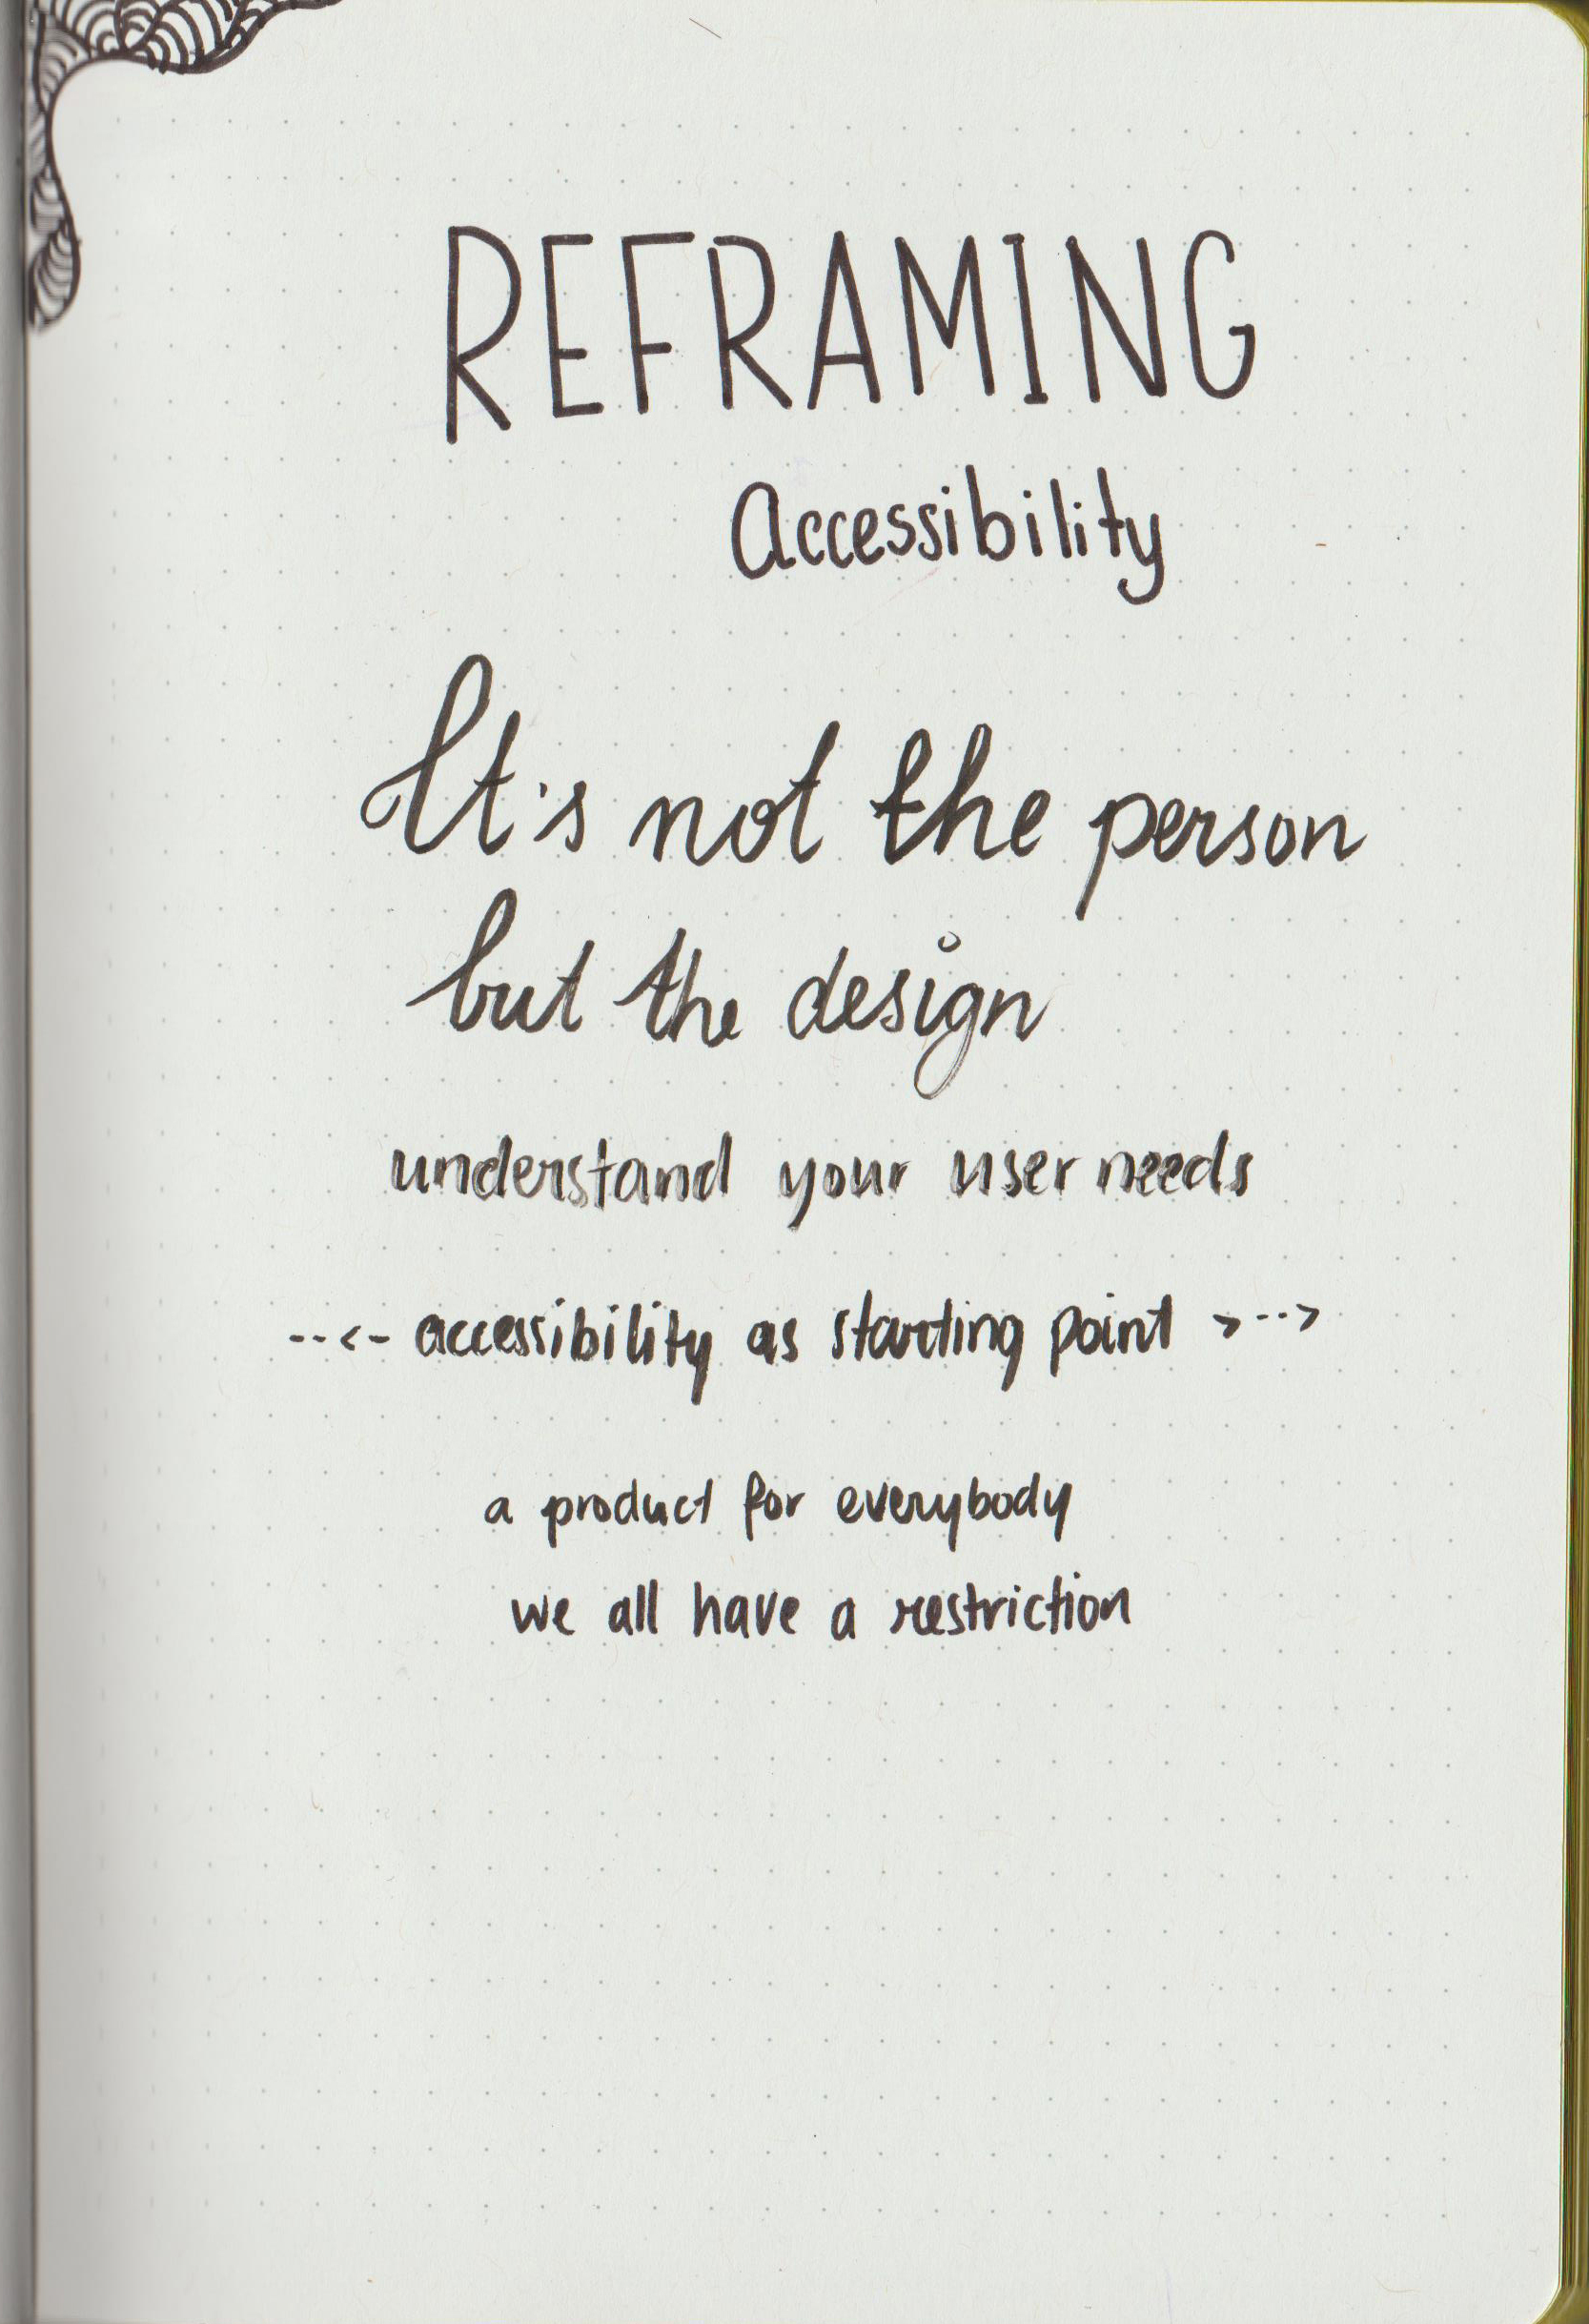 REFRAMING
Accessibility
It's not the person
but the design
understand your user needs
--<- accessibility as starting point >--->
a product for everybody
we all have a restriction